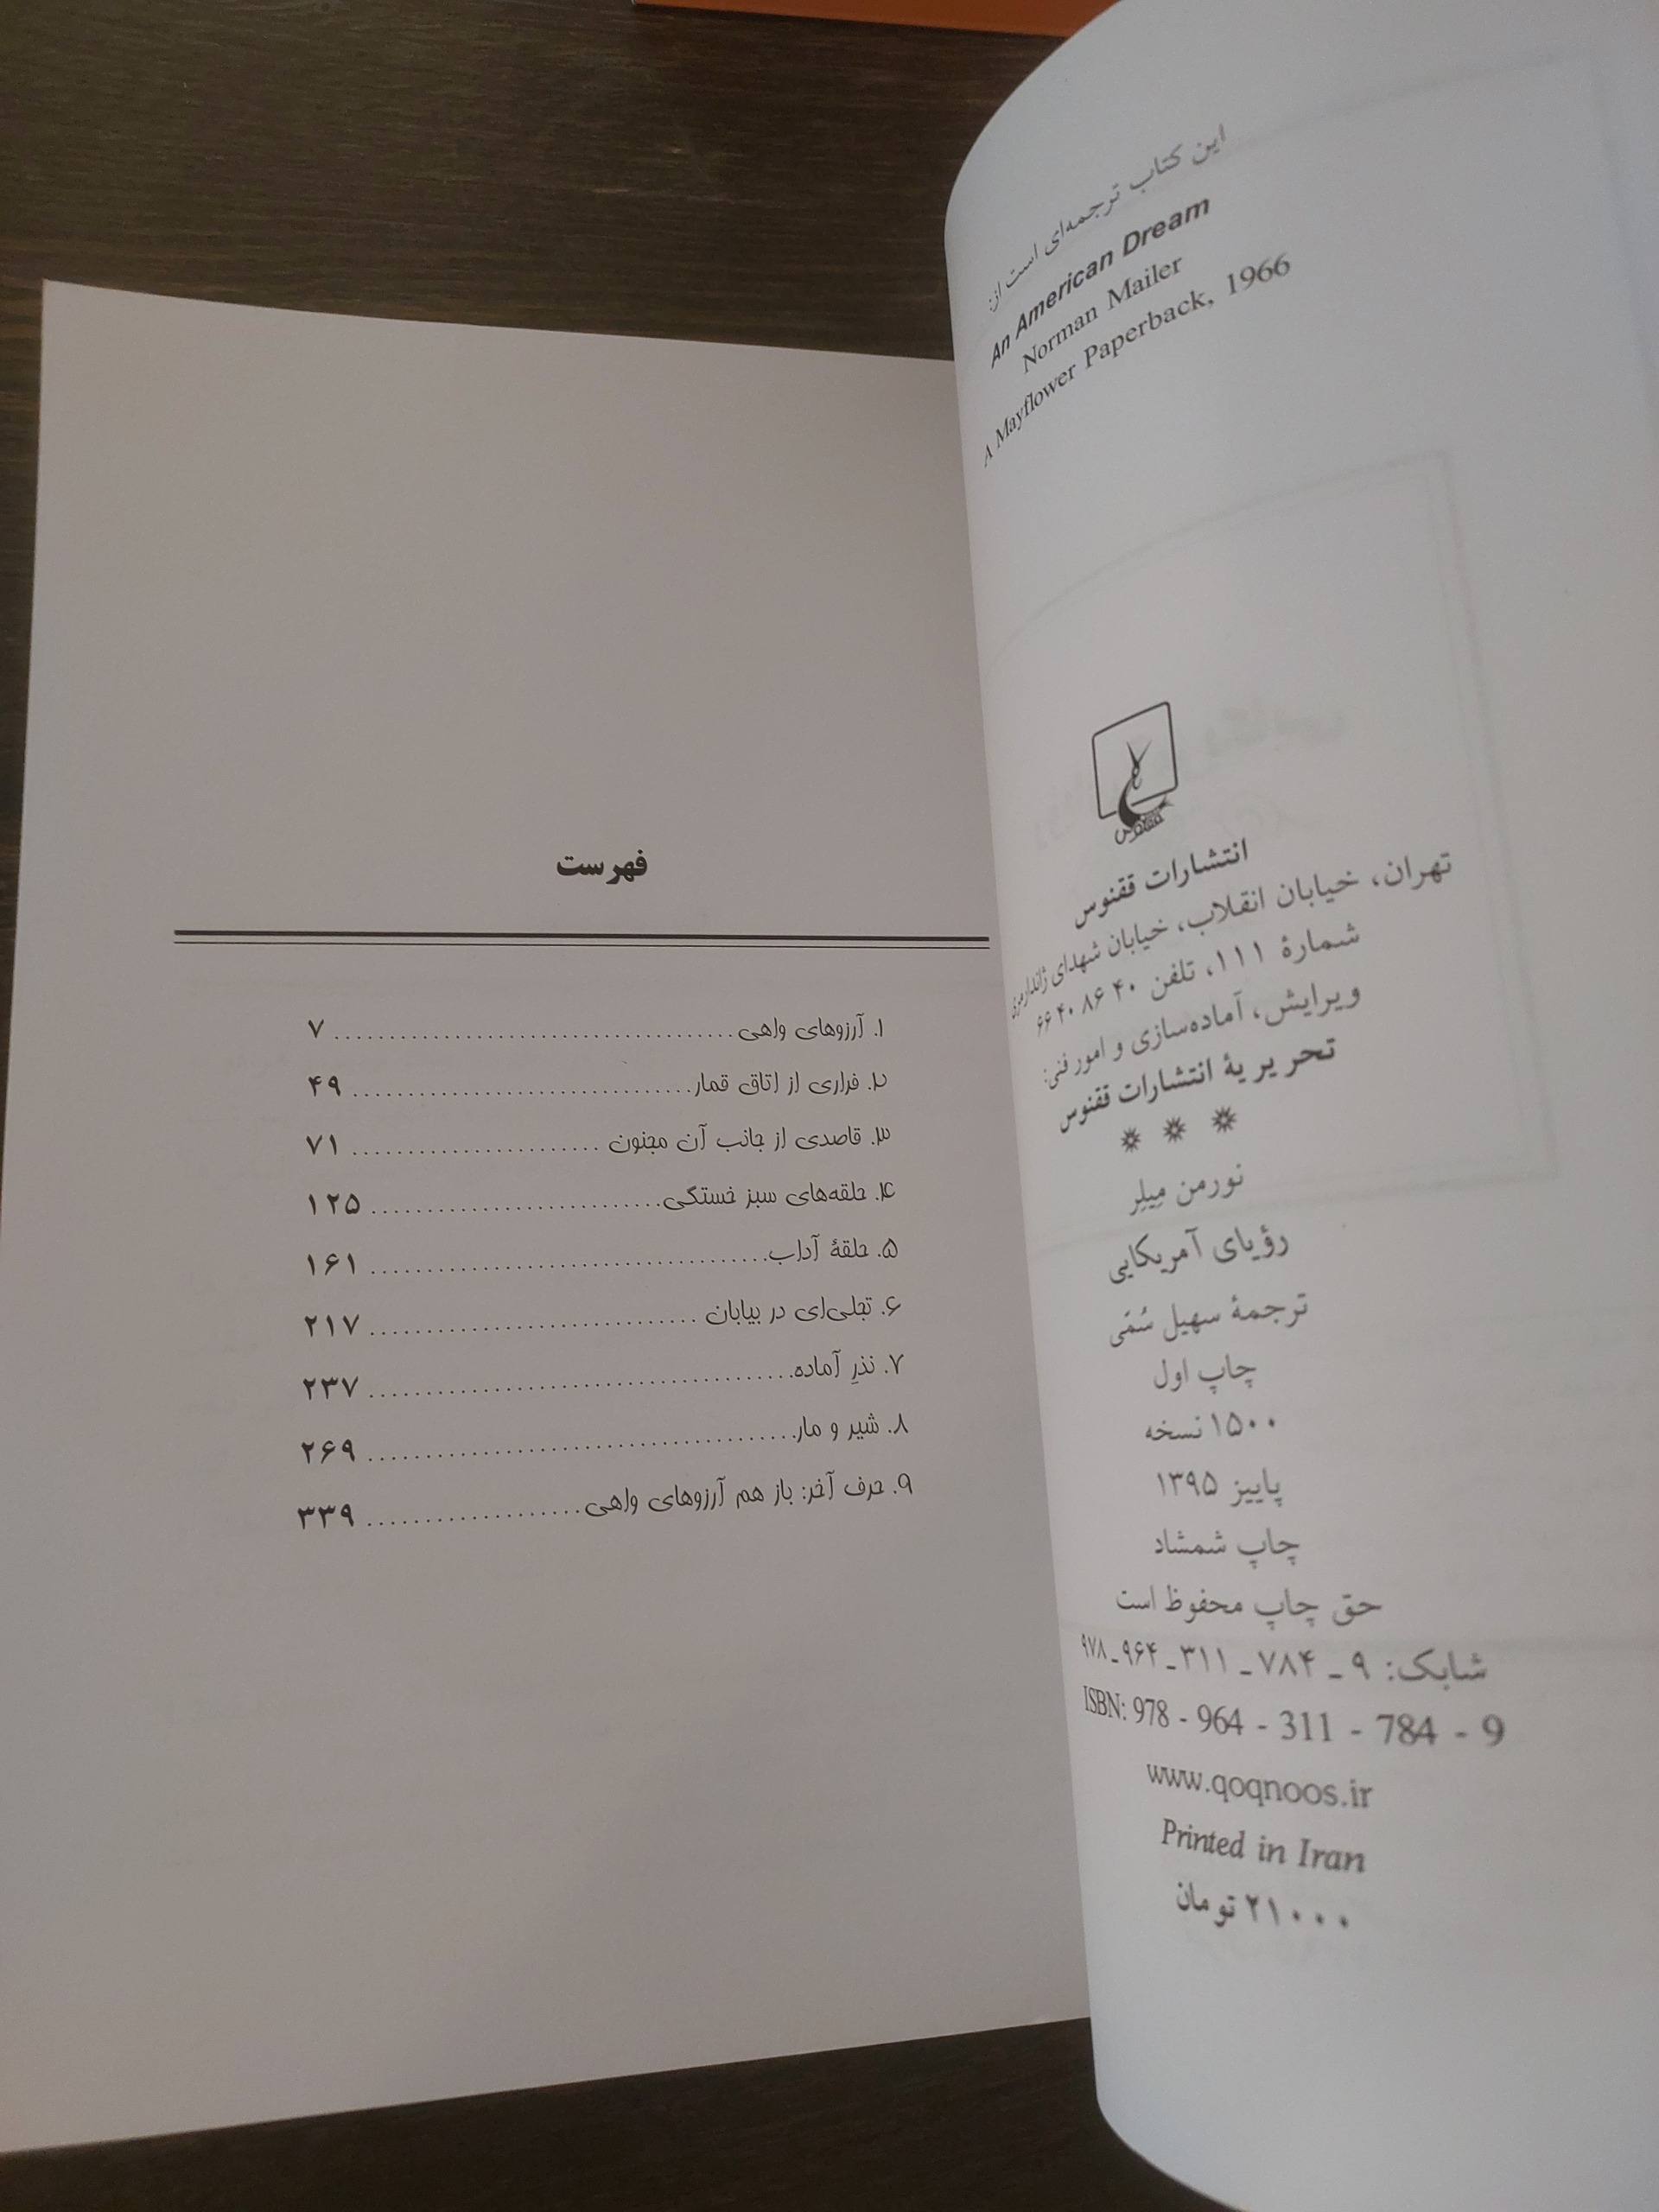 این کتاب ترجمه‌ای است از:
An American Dream
Norman Mailer
A Mayflower Paperback, 1966
ققنوس
انتشارات ققنوس
تهران، خیابان انقلاب، خیابان شهدای ژاندارمری
شمارهٔ ۱۱۱، تلفن ۴۰ ۸۶ ۴۰ ۶۶
ویرایش، آماده‌سازی و امور فنی:
تحریریهٔ انتشارات ققنوس
نورمن مِیلِر
رؤیای آمریکایی
ترجمهٔ سهیل سُمّی
چاپ اول
۱۵۰۰ نسخه
پاییز ۱۳۹۵
چاپ شمشاد
حق چاپ محفوظ است
شابک: ۹ ـ ۷۸۴ ـ ۳۱۱ ـ ۹۶۴ ـ ۹۷۸
ISBN: 978 - 964 - 311 - 784 - 9
www.qoqnoos.ir
Printed in Iran
۲۱۰۰۰ تومان
فهرست
۱. آرزوهای واهی ۷
۲. فراری از اتاق قمار ۴۹
۳. قاصدی از جانب آن مجنون ۷۱
۴. حلقه‌های سبز خستگی ۱۲۵
۵. حلقهٔ آداب ۱۶۱
۶. تجلی‌ای در بیابان ۲۱۷
۷. نذرِ آماده ۲۳۷
۸. شیر و مار ۲۶۹
۹. حرف آخر: باز هم آرزوهای واهی ۳۳۹